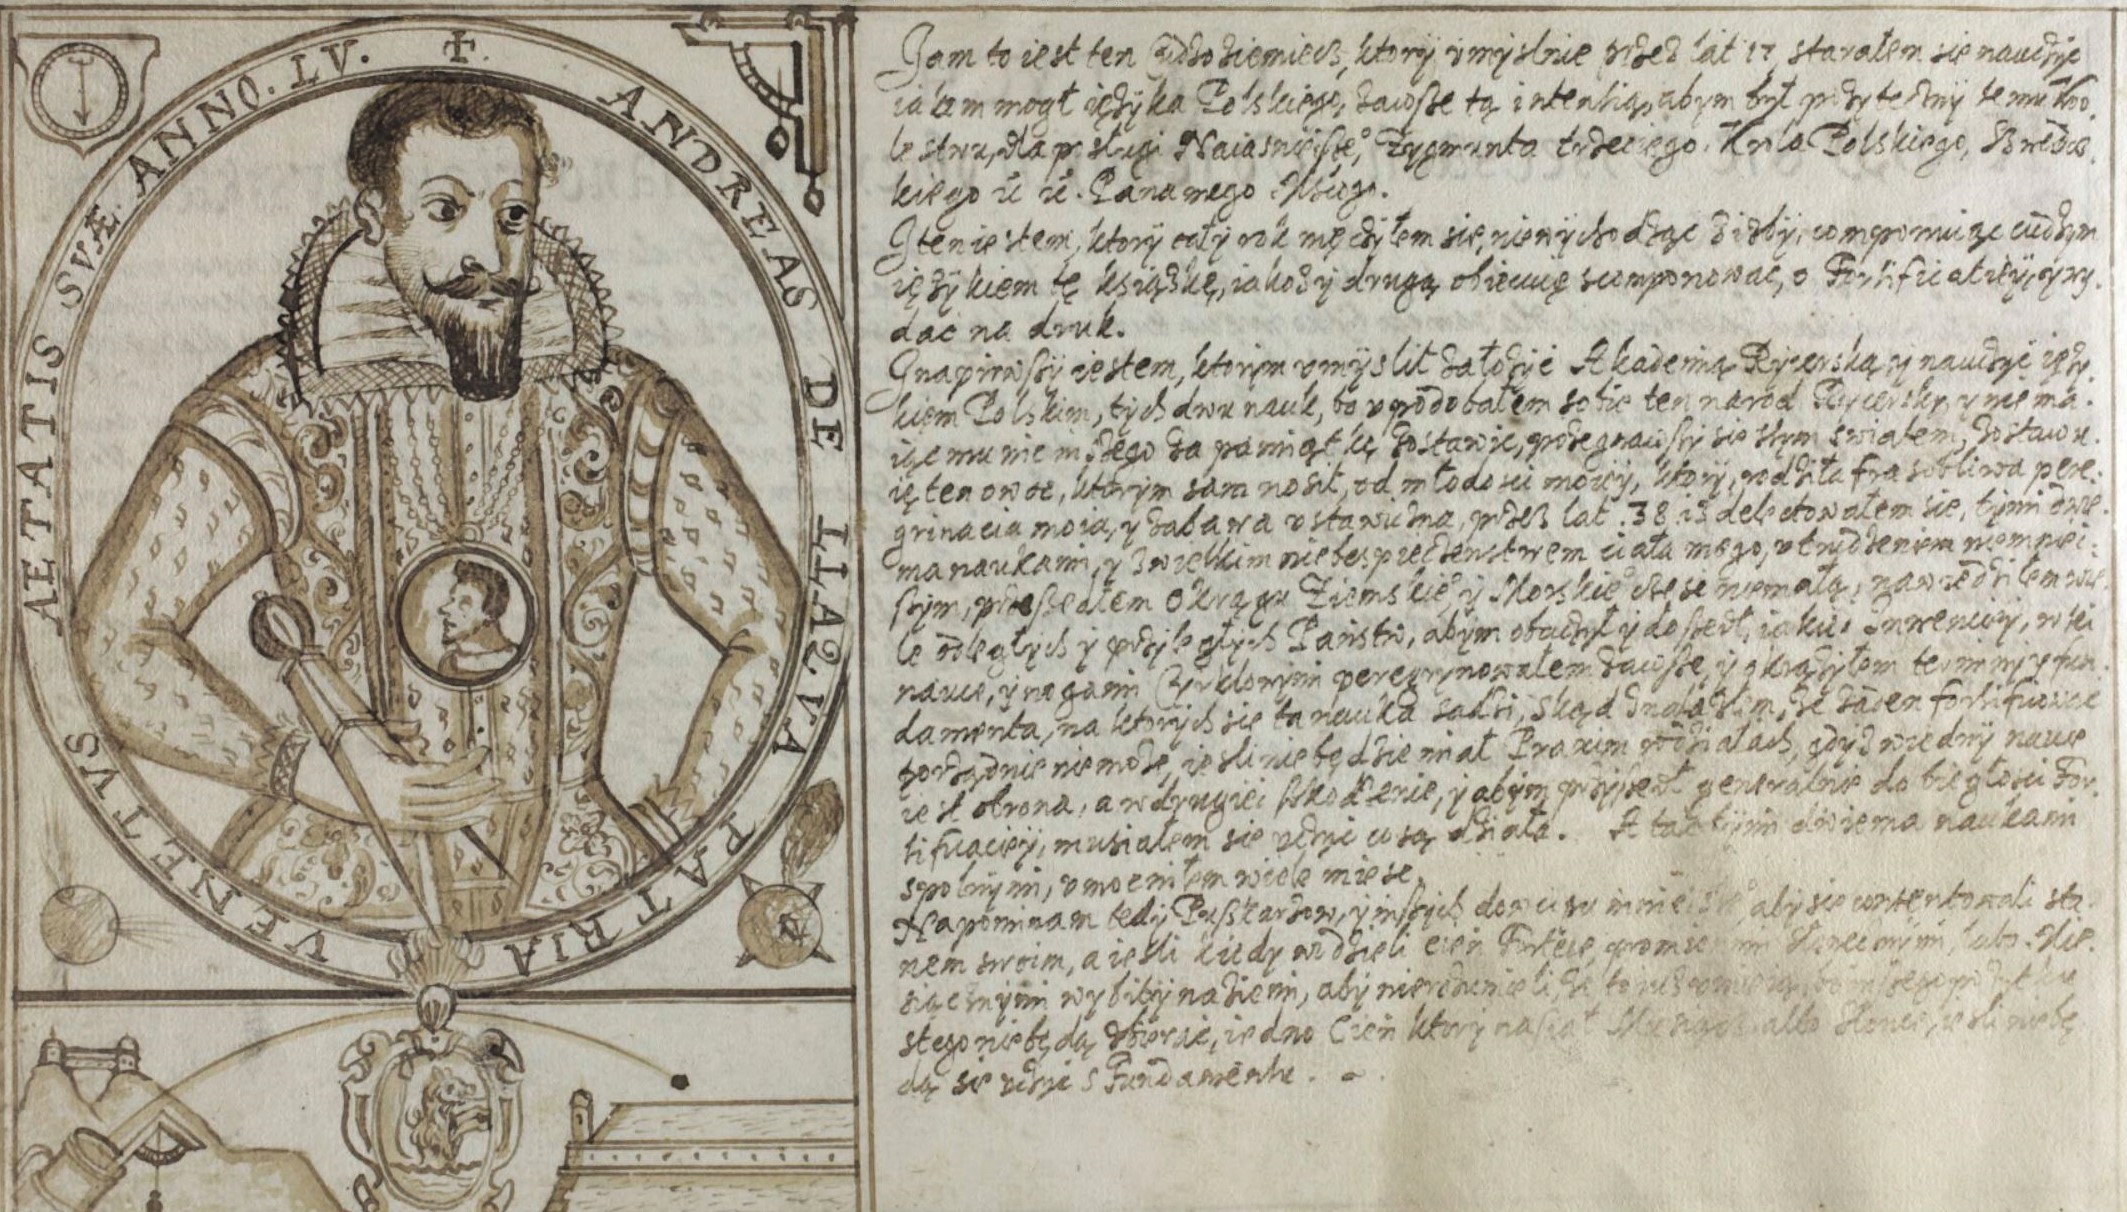 ✠ ANDREAS DELLAQVA PATRIA VENETVS AETATIS SVÆ ANNO. LV.
Jam to iest ten Cudzoziemiecz, ktory vmyslnie przez lat 17 starałem się nauczyc
iakem mogł ięzyka Polskiego, zawsze tą intentią, abym był pozyteczny temu Kro„
lestwu, dla posługi Naiasnieysze°, Zygmunta trzeciego. Krola Polskiego, Szwedz„
kiego ic ic. Pana mego Msciwego.
J ten iestem, ktory cały rok męczyłem się, niewychodząc z izby, componuiąc cudzym
ięzykiem tę książkę, iakoz y drugą obiecuię scomponowac, o Fortificatiey, y wy„
dac na druk.
J napirwszy iestem, ktorym vmyslił załozyc Akademią Rycerską, y nauczyc ięzy„
kiem Polskim, tych dwu nauk, bo vpodobałem sobie ten narod Rycersky, y nie ma„
iąc mu nic inszego za pamiątkę zostawic, pozegnawszy się stym swiatem, zostawu„
ię ten owoc, ktorym sam nosił, od młodosci mowy, ktory rodziła osobliwa pere„
grinacia moia, y zabawa vstawiczna, przez lat .38. iz delectowałem się, tymi dwie„
ma naukami, y zwielkim niebespieczenstwem ciała mego, vtrudzeniem niemniei„
szym, przeszedłem Okrągu Ziemskie°, y Morskie° częsc niemałą, nawiedziłem wie„
le odległych y przyległych Panstw, abym obaczył y doszedł, iakie Jnwencyy, w tei
nauce, y nogami Cyrklowymi peregrynowałem zawsze, y okrązyłem terminy y fun„
damenta, na ktorych się ta nauka sadzi, skąd znalazłem, ze zaden fortifikowac
porządnie niemoze, iesli niebędzie miał Praxim w działach, gdyz w iedny nauce
iest obrona, a w drugiei szkodzenie, y abym przyszedł generalnie do biegłosci For„
tificaciey, musiałem się vczyc co są działa. A tak tymi dwiema naukami
spolnymi, vmocniłem wiele miesc.
Napominam tedy Puszkarzow, y inszych aby się contentowali sta„
nem swoim, a iesli kiedy widzieli cien Fortece, promienimi słonecznymi, labo Mie„
siącznymi wybity na ziemi, aby nierozumieli, ze to iuz vmieią, bo inszego pozytku
stego niebędą zbierac, iedno Cien ktory Miesiąc albo słonce, iesli niebę„
dą się vczyc s Fundamentu.